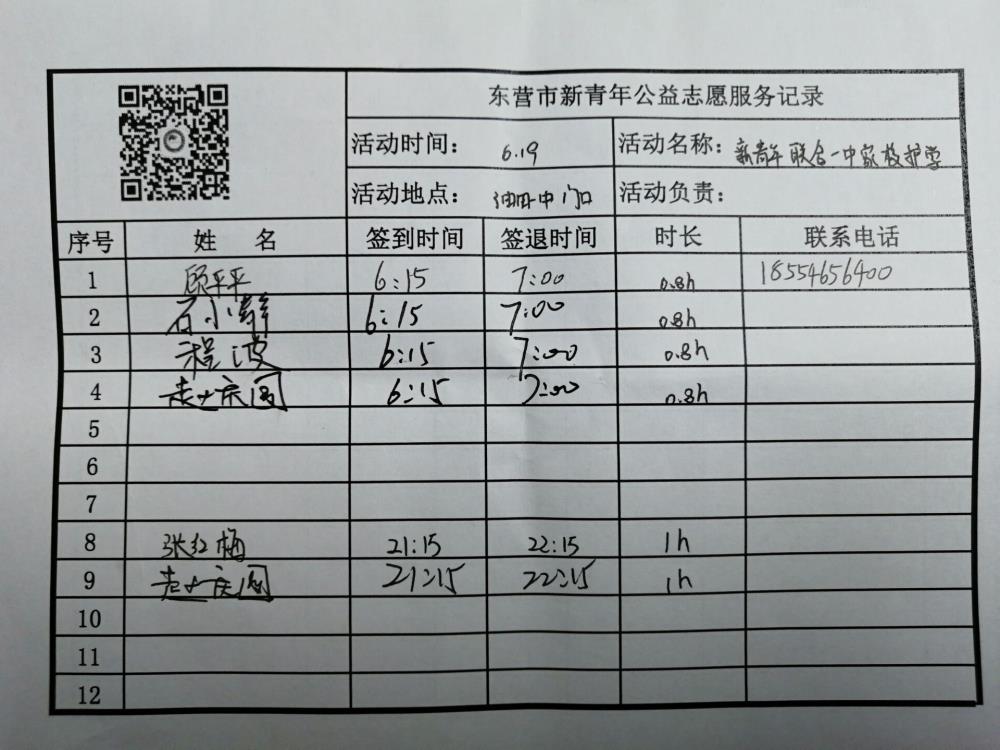 东营市新青年公益志愿服务记录
活动时间： 6.19 活动名称：新青年联合一中家校护学
活动地点： 油田一中门口 活动负责：
序号 姓 名 签到时间 签退时间 时长 联系电话
1 顾平平 6:15 7:00 0.8h 18554656400
2 石小静 6:15 7:00 0.8h
3 程波 6:15 7:00 0.8h
4 6:15 7:00 0.8h
5
6
7
8 张红梅 21:15 22:15 1h
9 21:15 22:15 1h
10
11
12